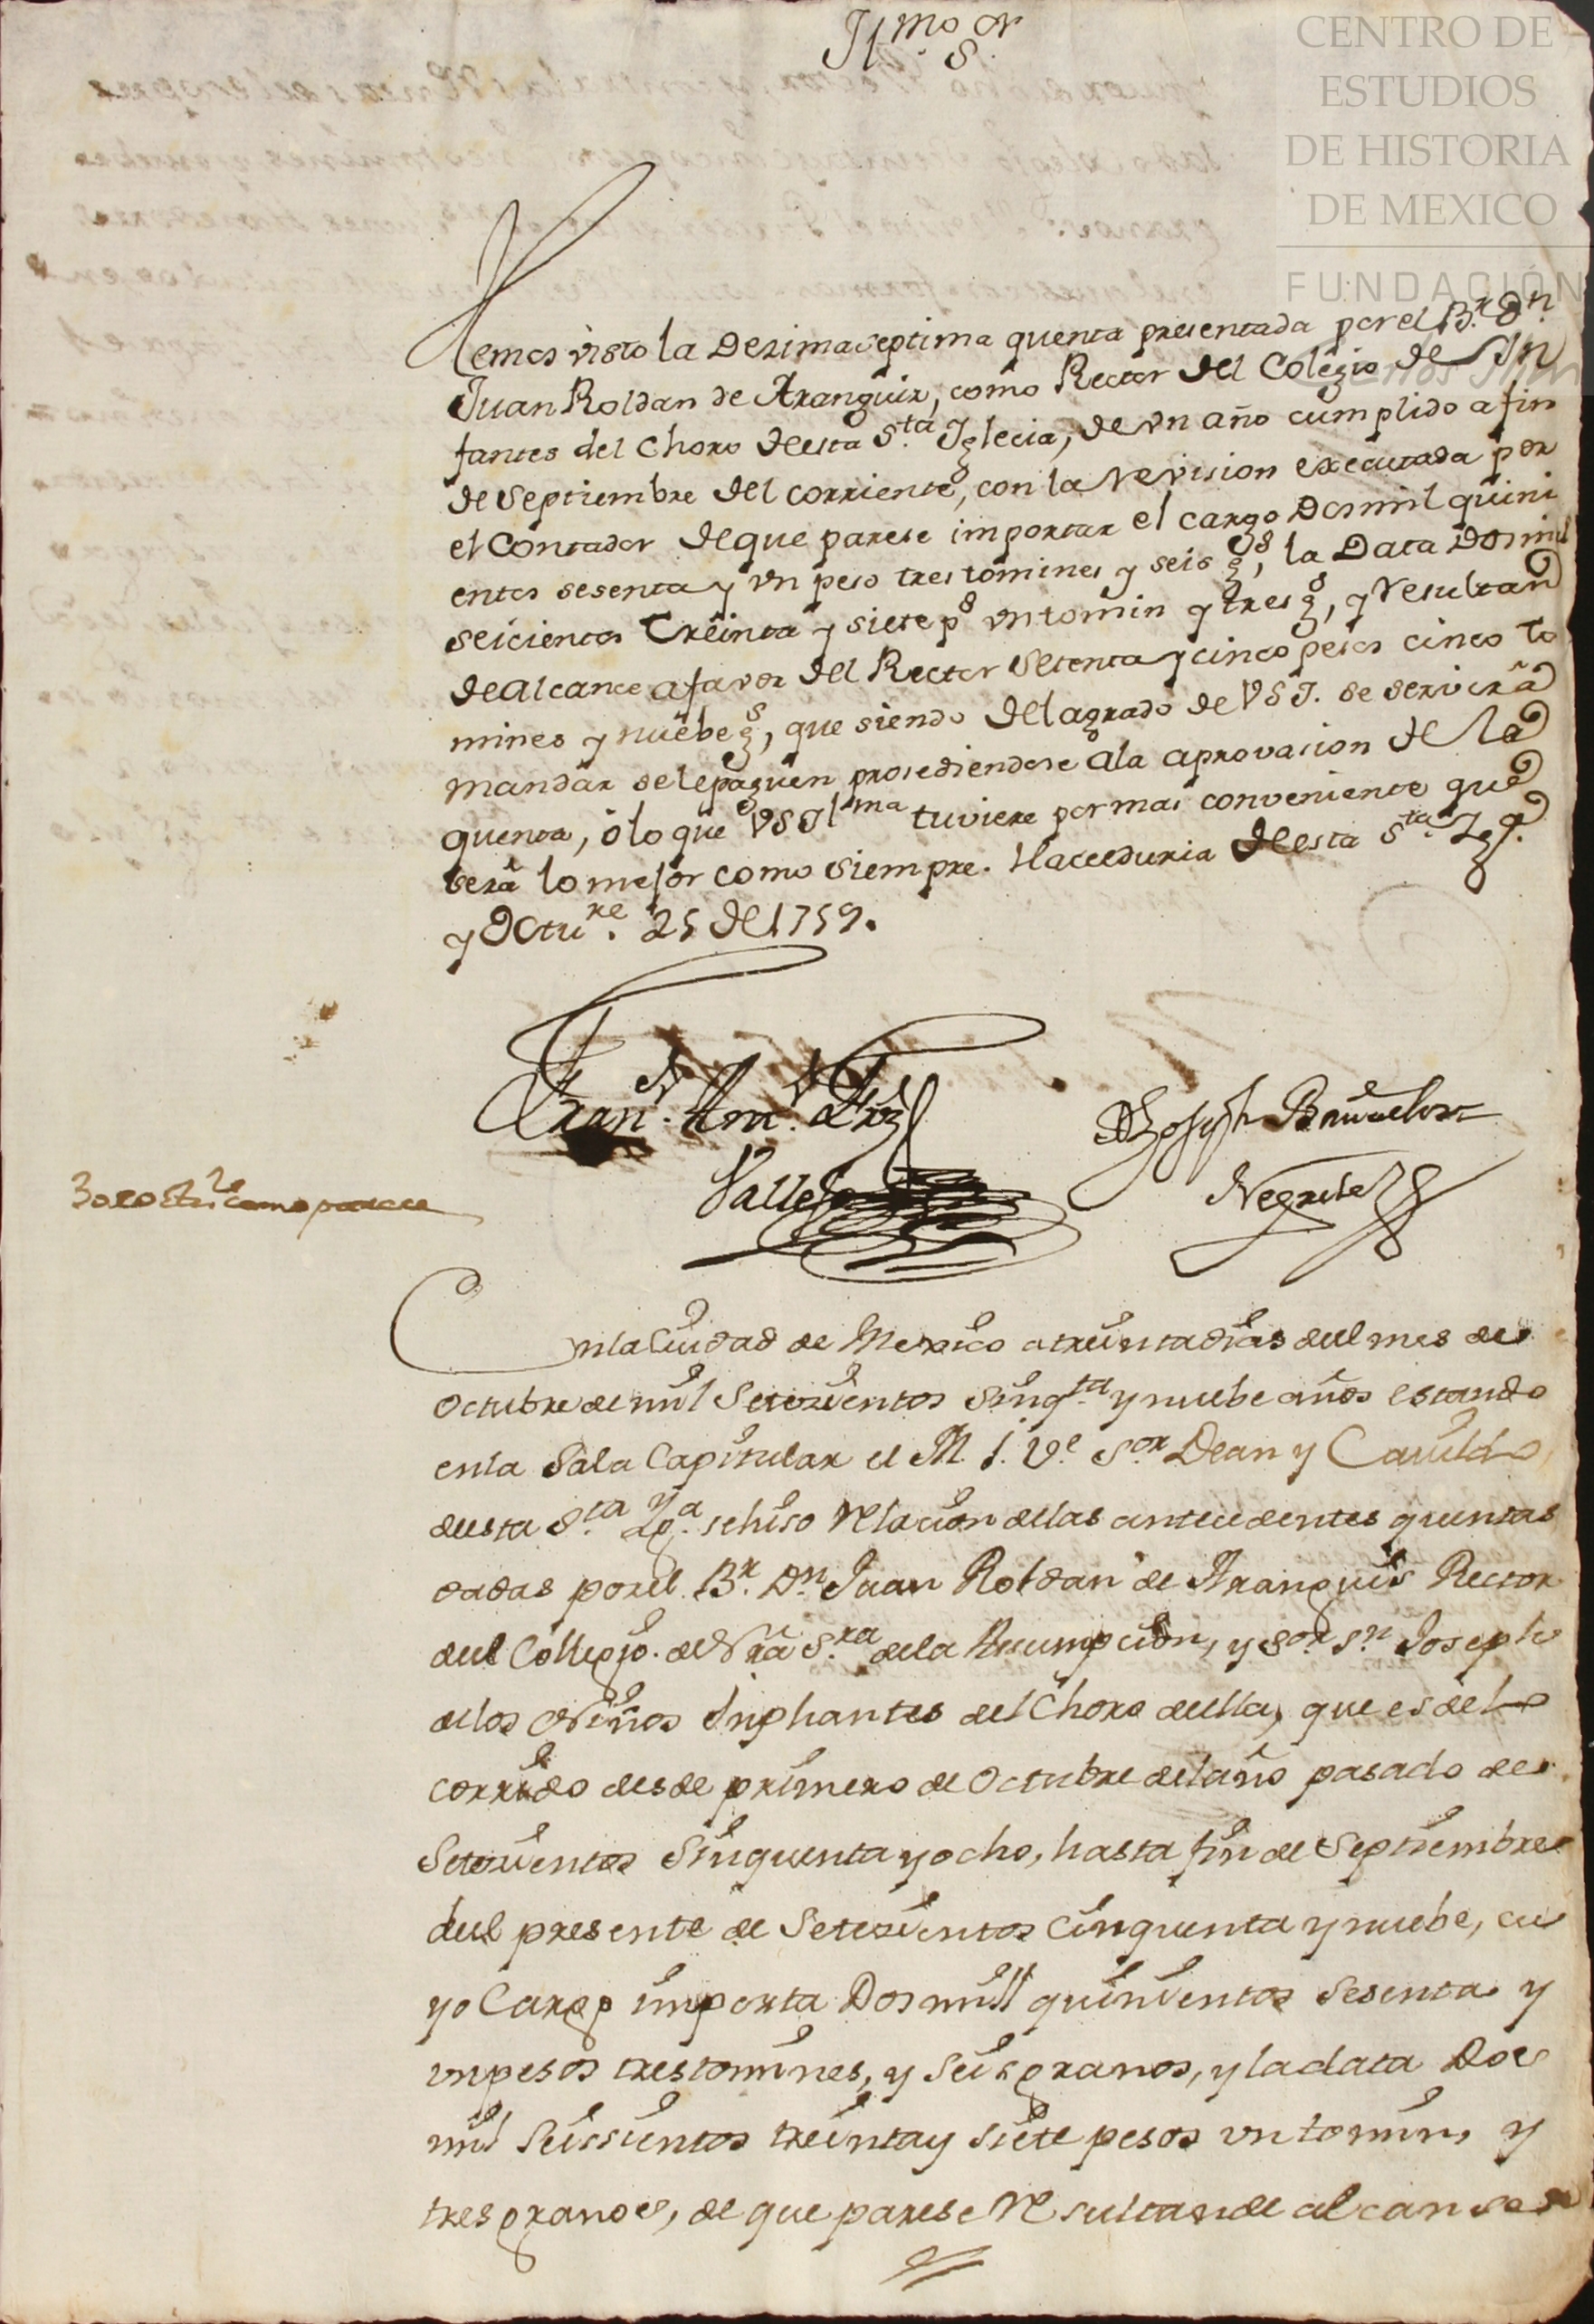 Yl.mo S.or
CENTRO DE
ESTUDIOS
DE HISTORIA
DE MEXICO
FUNDACIÓN
Hemos visto la Dezimaseptima quenta presentada por el B.r D.n
Juan Roldan de Aranguix, como Rector del Colegio de Yn
fantes del Choro de esta S.ta Yglecia, de vn año cumplido a fin
de Septiembre del corriente, con la revision executada por
el Contador de que parese importar el cargo Dos mil quini
entos sesenta y vn peso tres tomines y seis g.s, la Data Dos mil
seicientos treinta y siete p.s vn tomin y tres g.s, y resultan
de alcance a favor del Rector setenta y cinco pesos cinco to
mines y nuebe g.s, que siendo del agrado de VSJ. se servirá
mandar se le paguen prosediendose a la aprovacion de la
quenta, ó lo que VSJl.ma tuviere por mas conveniente que
será lo mejor como siempre. Haceduria de esta S.ta Yg.a
y Octu.re 25 de 1759.
Fran.co Xm.z
Vallejo
D Joseph Bañuelos
Negrete
30 de Oct.re como parece
En la Ciudad de Mexico a treinta dias del mes de
Octubre de mil Setezientos sinq.ta y nuebe años estando
en la Sala Capitular el M. J. V.e S.or Dean y Cavildo
de esta S.ta Yg.a se hiso relacion de las antecedentes quentas
dadas por el B.r D.n Juan Roldan de Aranguis Rector
del Collegio de Nra S.ra de la Assumpcion, y S.or S.n Joseph
de los Niños Ynphantes del Choro de ella, que es de lo
corrido desde primero de Octubre del año pasado de
Setezientos Sinquenta y ocho, hasta fin de Septiembre
del presente de Setezientos Cinquenta y nuebe, cu
yo Cargo importa Dos mill quinientos sesenta y
vn pesos tres tomines, y seis granos, y la data Dos
mil Seissientos treinta y siete pesos vn tomin, y
tres granos, de que parese resultan de alcanse